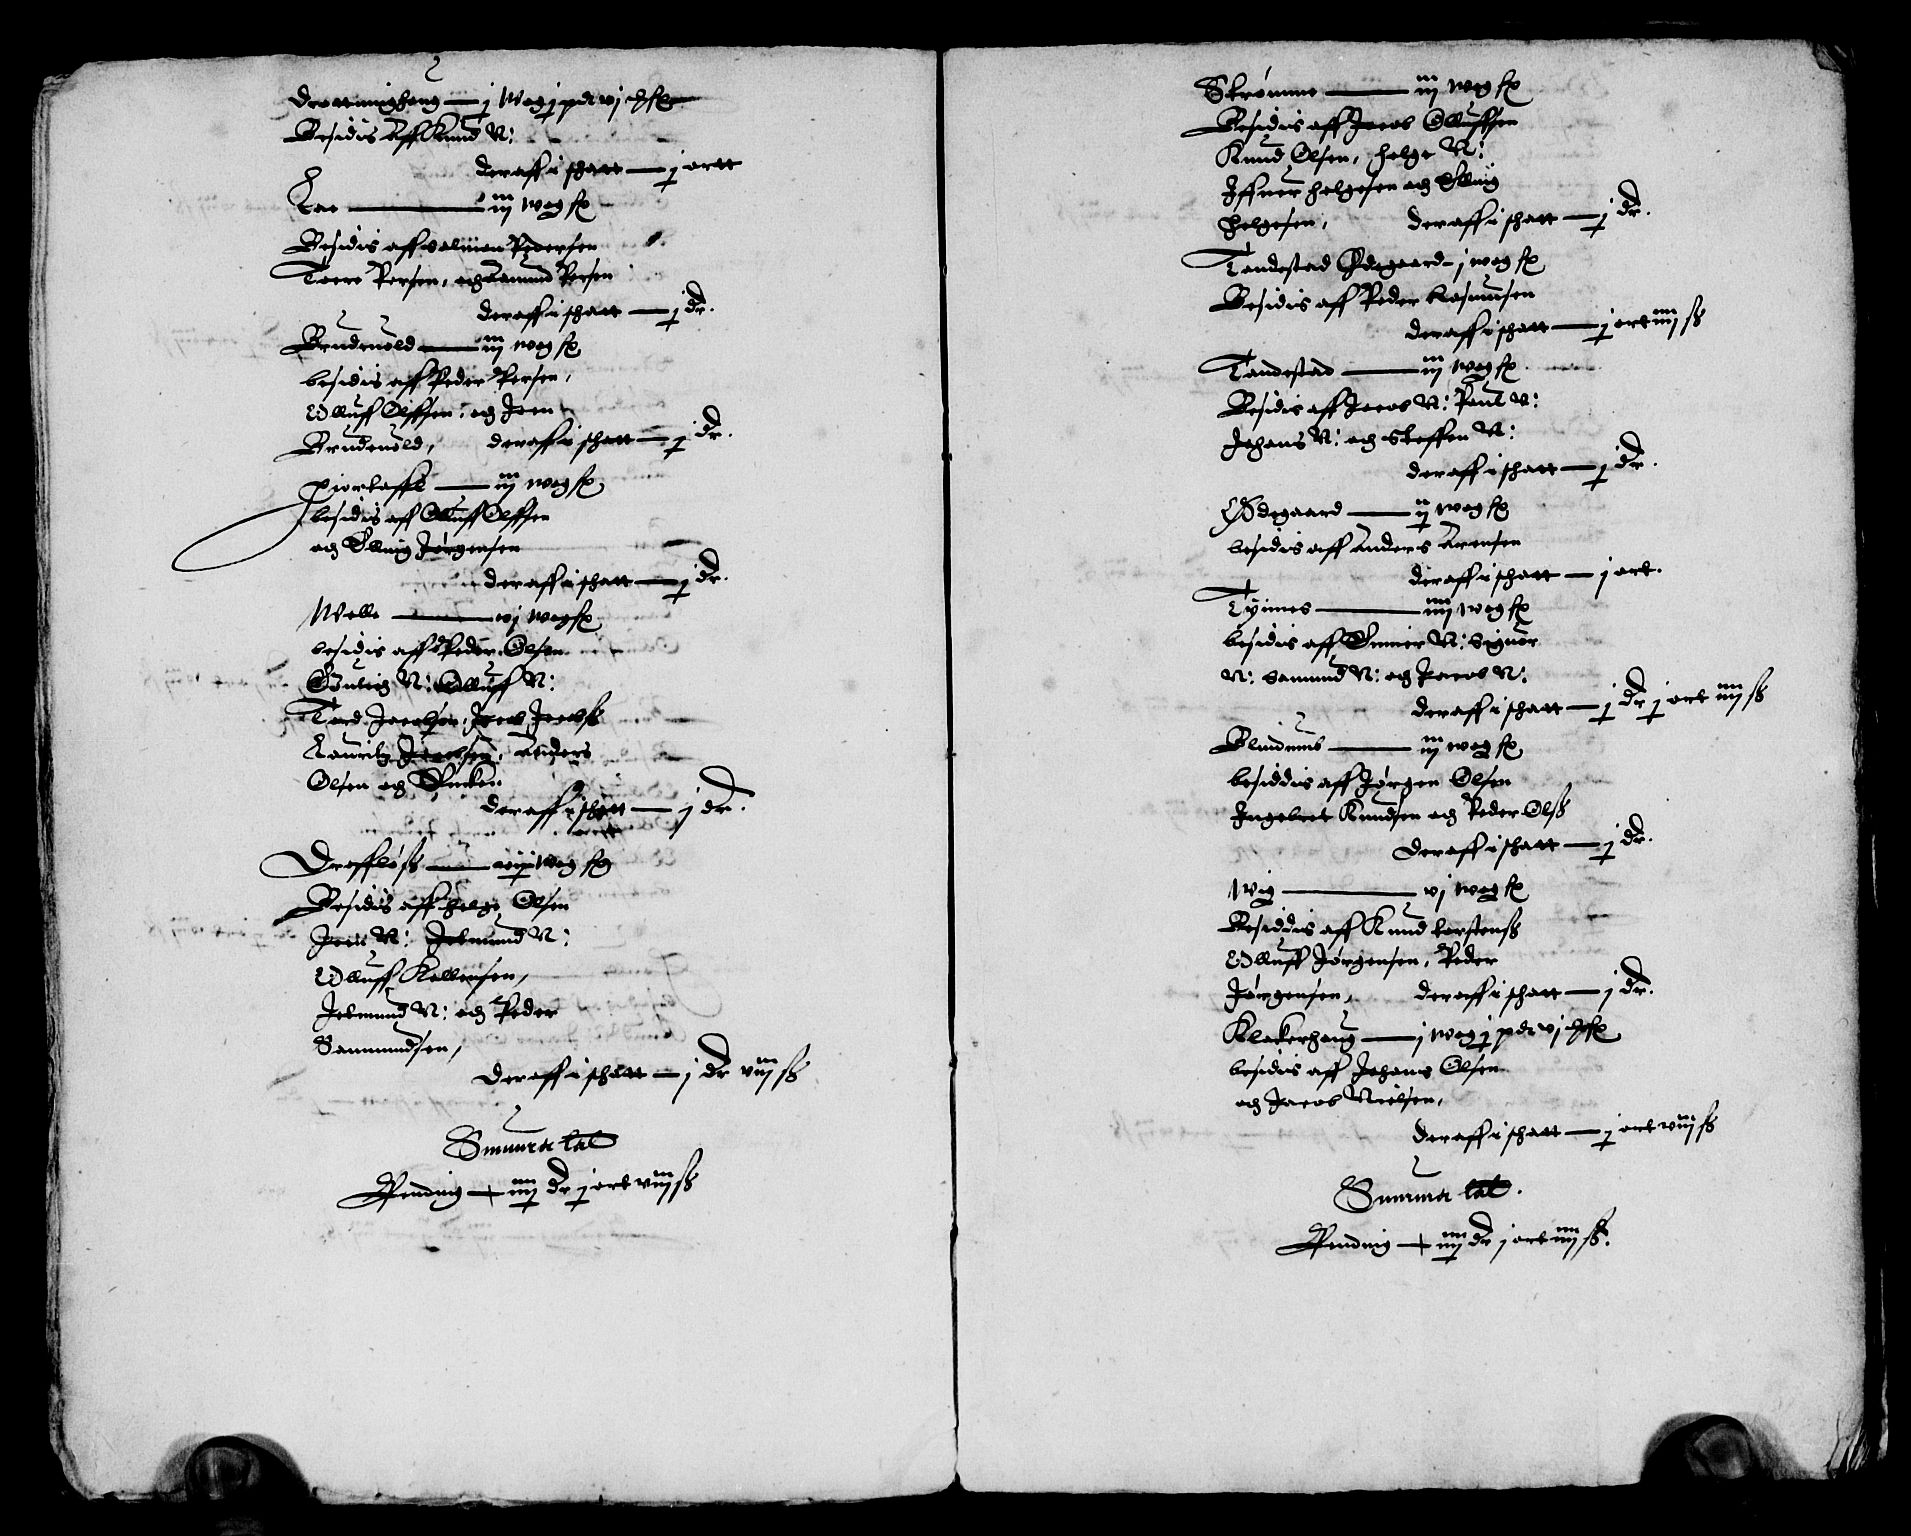 Drottninghoug — j wog j pdt vj ₰ fℓ
Besidis aff Knud N:
deraff i schatt — j ortt
Lae — iij wog fℓ
Besidis aff Salmon Pedersen
Toere Persen, och Samund Persen
deraff i schatt — j dr.
Brudeuold — iij wog fℓ
besidis aff Peder Persen,
Olluff Olssen, och Joen
Brudeuold, deraff i schatt — j dr.
— iij wog fℓ
besidis aff Olluff Olssen
och Elling Jørgensen
deraff i schatt — j dr.
Welle — vj wog fℓ
besidis aff Peder Olsen
Gulich N: Olluff N:
Tord Jacobsen, Jacob Jacobß
Lauritz Jacobsen, Anders
Olsen och
deraff i schatt — j dr.
Draffløß — viij wog fℓ
Besidis aff Helge Olsen
Joen N: Jetmund N:
Olluff Kellensen,
Jetmund N: och Peder
Sammundsen,
deraff i schatt — j dr viij ß
Summa lat
Pending — iiij dr j ort viij ß
Strømme — iij wog fℓ
Besidis aff Jacob Olluffsen
Knud Olsen, Helge N:
Iffuer Helgesen och Elling
Helgesen, deraff i schatt — j dr.
Tandestad Ødegaard — j wog fℓ
Besidis aff Peder Rasmusen
deraff i schatt — j ort iiij ß
Tandestad — iij wog fℓ
Besidis aff Jacob N: Poul N:
Johans N: och Steffen N:
deraff i schatt — j dr.
Ødegaard — ij wog fℓ
besidis aff Anders Arensen
deraff i schatt — j ort.
Tyimes — iiij wog fℓ
besidis aff Einner N: Signor
N: Samund N: och Jacob N:
deraff i schatt — j dr j ort iiij ß
Blindeim — iij wog fℓ
besiddis aff Jørgen Olsen
Ingebret Knudsen och Peder Olß
Deraff i schatt — j dr.
Wig — vj wog fℓ
Besiddis aff Knud torstenß
Olluff Jørgensen, Peder
Jørgensen, deraff i schatt — j dr.
Klokerhoug — j wog j pdt vj ₰ fℓ
besidis aff Johans Olsen
och Jacob Nielsen,
deraff i schatt — j ort viij ß
Summa lat.
Pending — iiij dr j ort iiij ß.